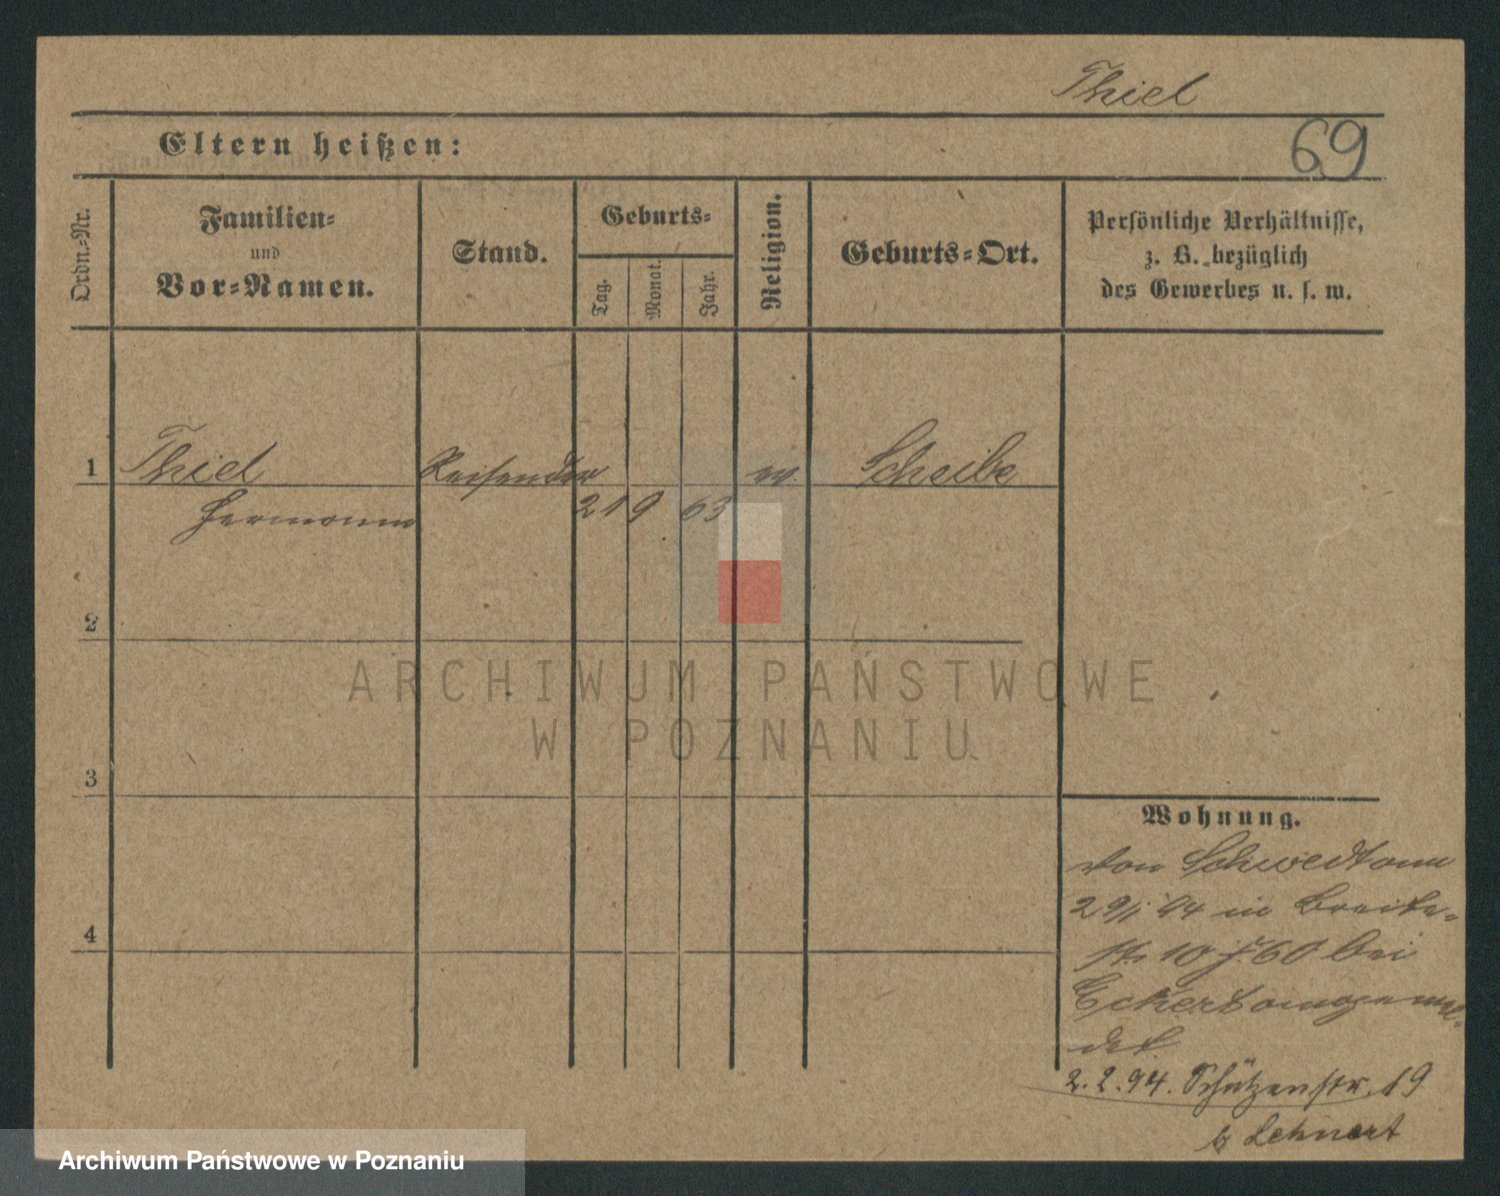 Thiel
Eltern heißen:
69
Ordn.-Nr.
Familien-
und
Vor-Namen.
Stand.
Geburts-
Tag.
Monat.
Jahr.
Religion.
Geburts-Ort.
Persönliche Verhältnisse,
z. B. bezüglich
des Gewerbes u. s. w.
1 Thiel Reisender ev. Scheibe
Hermann 21 9 63
2
ARCHIWUM PAŃSTWOWE
W POZNANIU
3
Wohnung.
von Schwedt am
29/1 94 in Breite-
4
str. 10 J. 60 bei
Eckert angemel-
det
2.2.94. Schützenstr. 19
b Lehnert
Archiwum Państwowe w Poznaniu